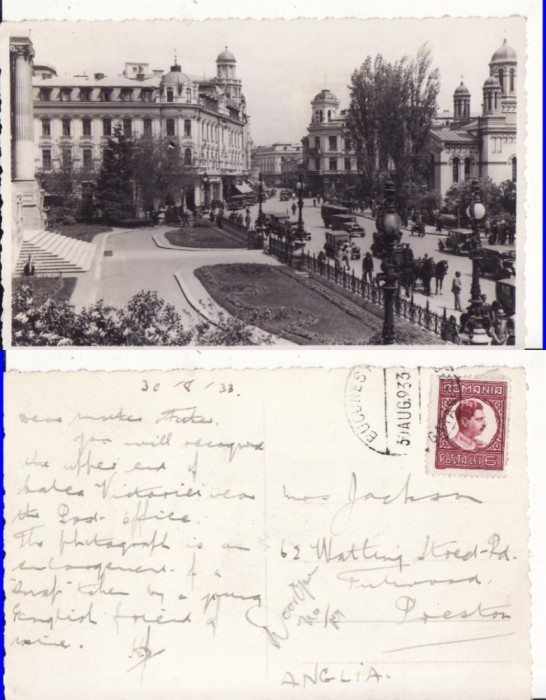 30/8/33.
Dear
You will recognise
the upper end of
Calea Victoriei near
the Post-office.
The photograph is an
enlargement of a
'snap' taken by a young
English friend of
mine.
BUCURES
30 AUG. 933
ROMANIA
POSTA LEI 6
Mrs Jackson
62 Watling Street-Rd.
Fulwood,
Preston
ANGLIA.